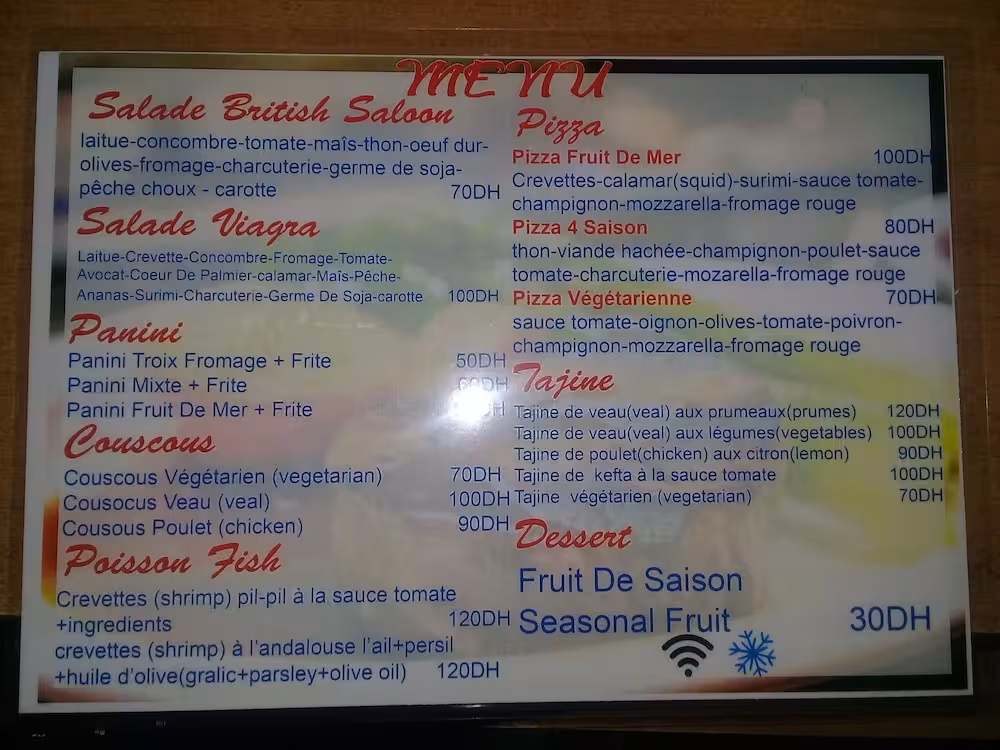 MENU
Salade British Saloon
laitue-concombre-tomate-maîs-thon-oeuf dur-
olives-fromage-charcuterie-germe de soja-
pêche choux - carotte 70DH
Salade Viagra
Laitue-Crevette-Concombre-Fromage-Tomate-
Avocat-Coeur De Palmier-calamar-Maîs-Pêche-
Ananas-Surimi-Charcuterie-Germe De Soja-carotte 100DH
Panini
Panini Troix Fromage + Frite 50DH
Panini Mixte + Frite
Panini Fruit De Mer + Frite
Couscous
Couscous Végétarien (vegetarian) 70DH
Cousocus Veau (veal) 100DH
Cousous Poulet (chicken) 90DH
Poisson Fish
Crevettes (shrimp) pil-pil à la sauce tomate
+ingredients 120DH
crevettes (shrimp) à l'andalouse l'ail+persil
+huile d'olive(gralic+parsley+olive oil) 120DH
Pizza
Pizza Fruit De Mer 100DH
Crevettes-calamar(squid)-surimi-sauce tomate-
champignon-mozzarella-fromage rouge
Pizza 4 Saison 80DH
thon-viande hachée-champignon-poulet-sauce
tomate-charcuterie-mozarella-fromage rouge
Pizza Végétarienne 70DH
sauce tomate-oignon-olives-tomate-poivron-
champignon-mozzarella-fromage rouge
Tajine
Tajine de veau(veal) aux prumeaux(prumes) 120DH
Tajine de veau(veal) aux légumes(vegetables) 100DH
Tajine de poulet(chicken) aux citron(lemon) 90DH
Tajine de kefta à la sauce tomate 100DH
Tajine végétarien (vegetarian) 70DH
Dessert
Fruit De Saison
Seasonal Fruit 30DH